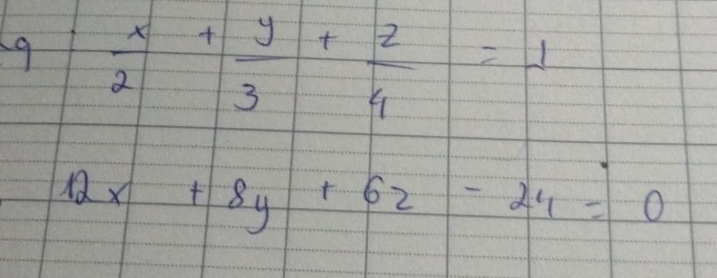 9 . x/2 + y/3 + z/4 = 1
12x + 8y + 6z - 24 = 0